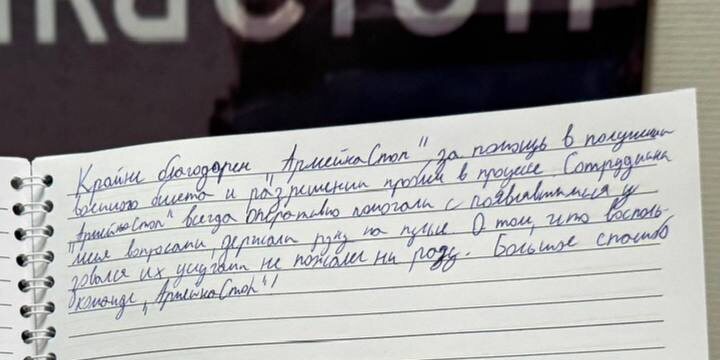 каСтоп
Крайне благодарен "АрмейкаСтоп" за помощь в получении
военного билета и разрешении проблем в процессе. Сотрудники
"АрмейкаСтоп" всегда оперативно помогали с появившимися у
меня вопросами, держали руку на пульсе. О том, что восполь-
зовался их услугами не пожалел ни разу. Большое спасибо
команде "АрмейкаСтоп"!